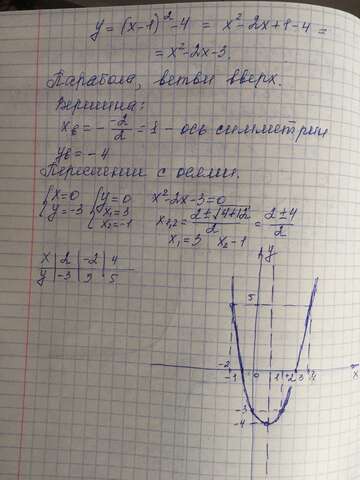 y = (x-1)² - 4 = x² - 2x + 1 - 4 =
= x² - 2x - 3.
Парабола, ветви вверх.
Вершина:
xв = - -2/2 = 1 - ось симметрии
yв = -4
Пересечения с осями.
{x=0 {y=0 x²-2x-3=0
{y=-3 {x₁=3 x₁,₂ = 2±√4+12/2 = 2±4/2
x₂=-1 x₁=3 x₂-1
x | 2 | -2 | 4
y | -3 | 5 | 5
y
5
-2 -1 0 1 2 3 4 x
-3
-4